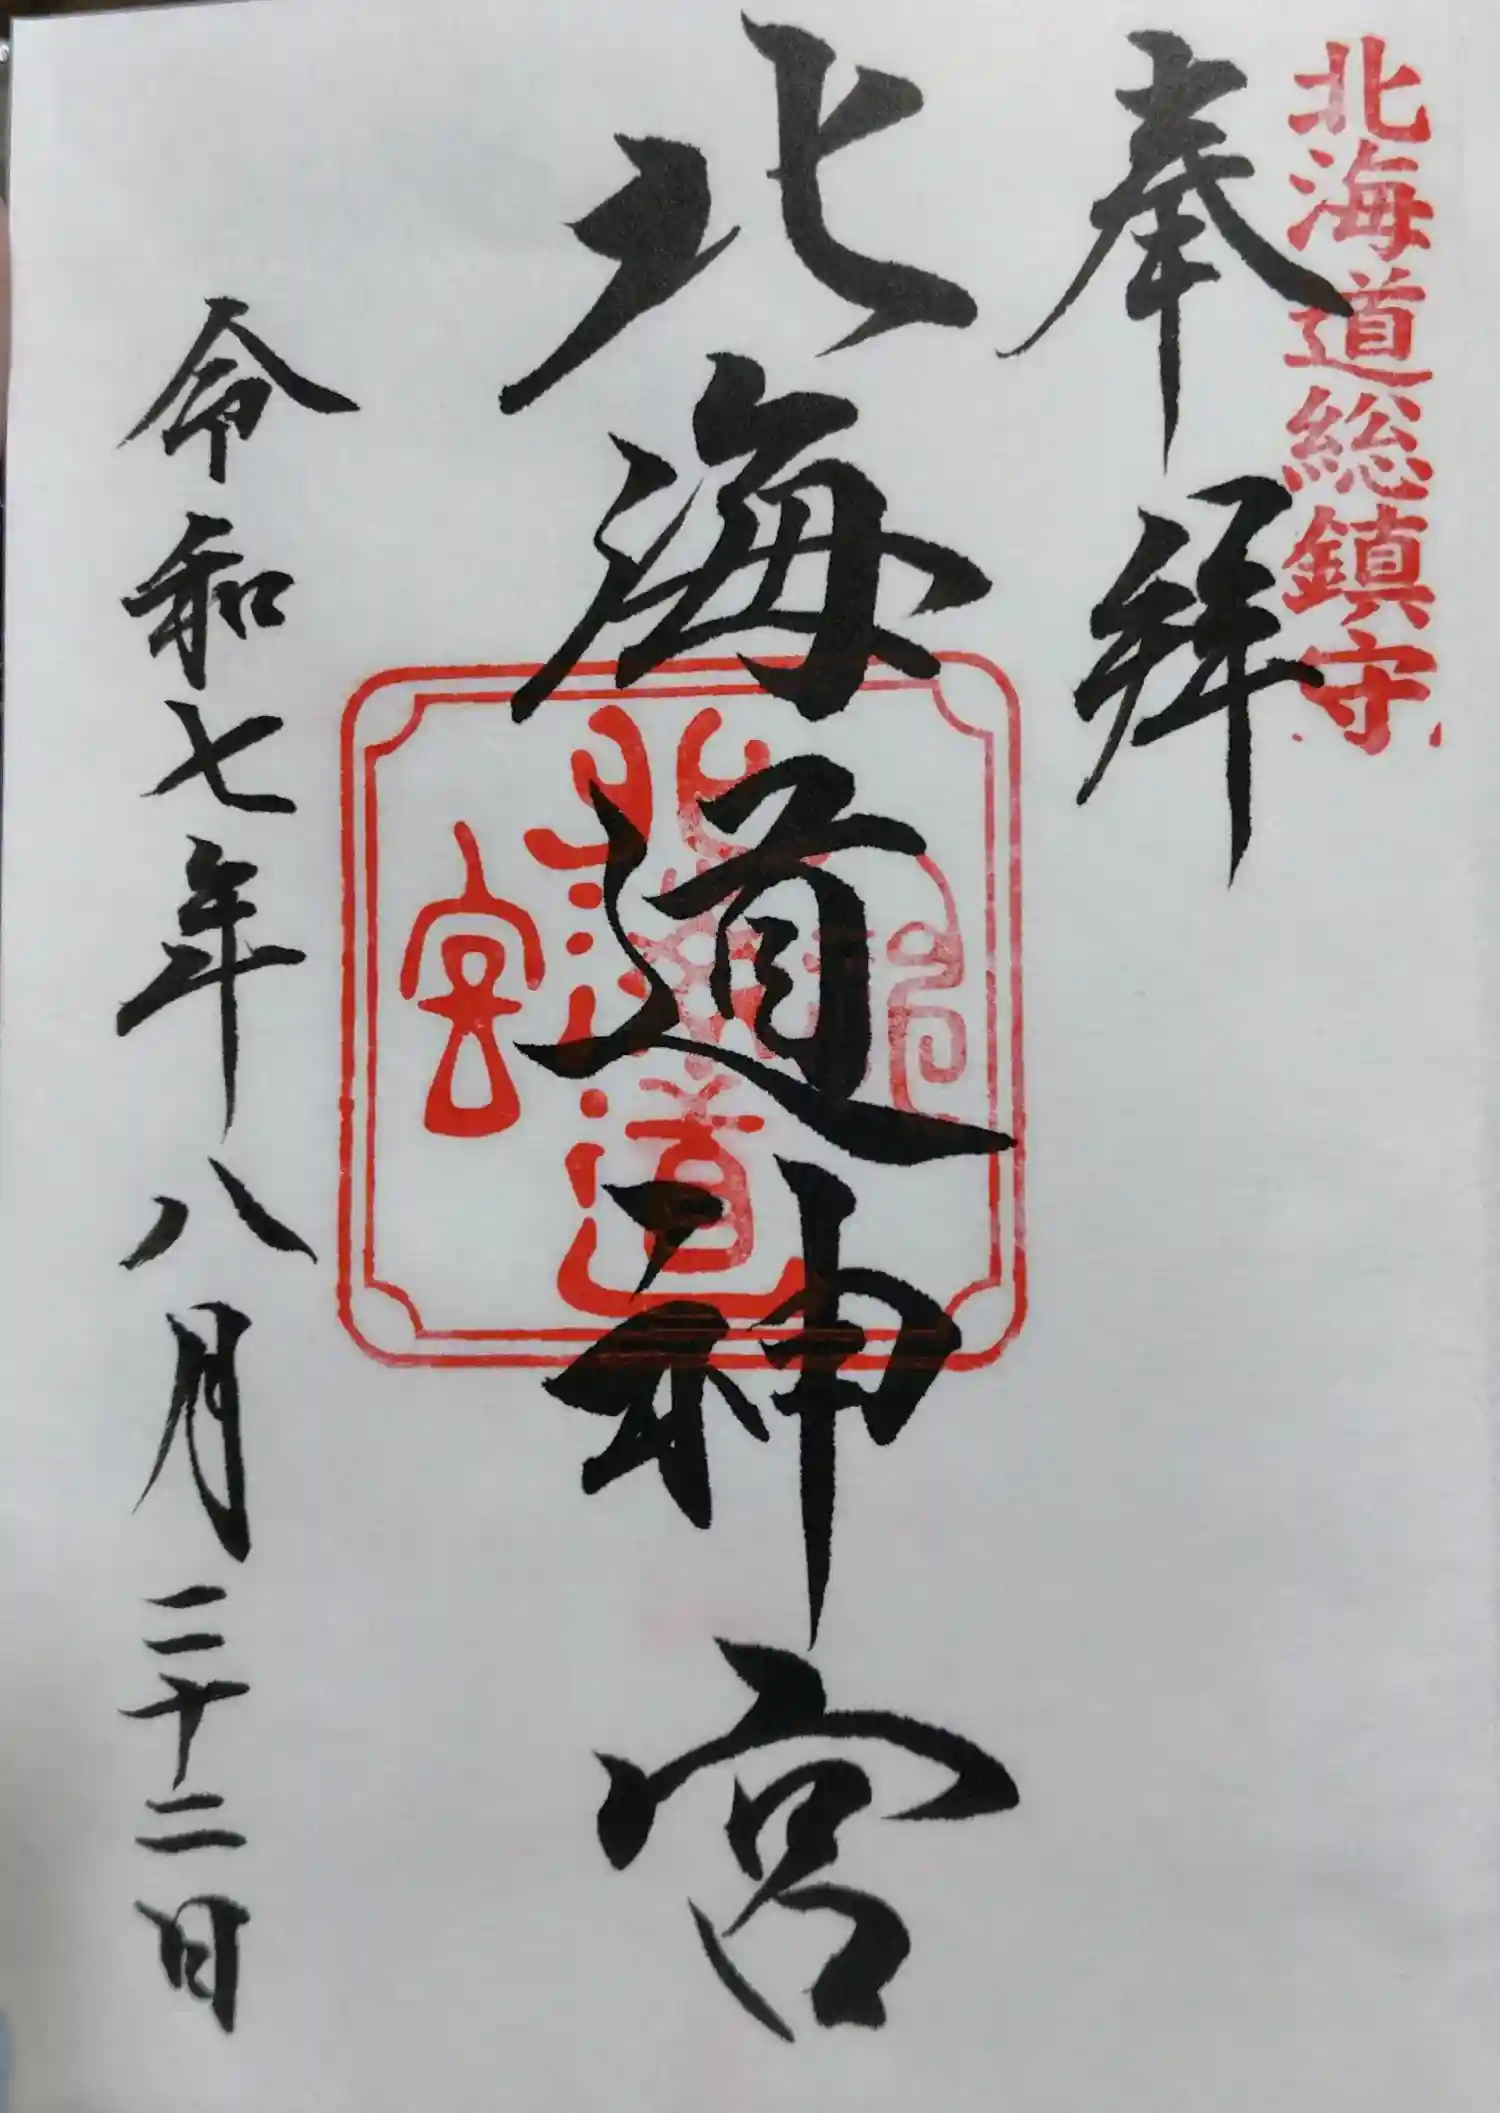 北海道総鎮守
奉拝
北海道神宮
北海道
宮
令和七年八月二十二日